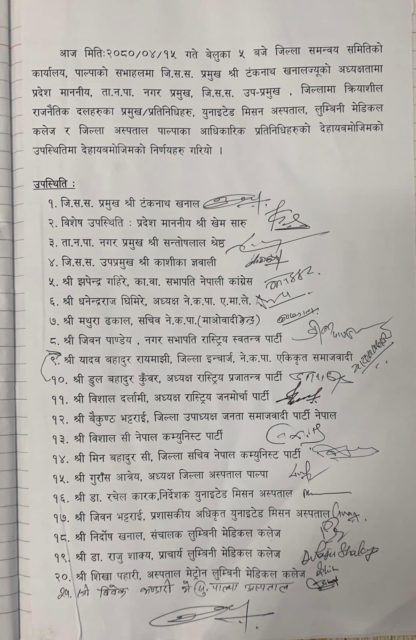 आज मितिः२०८०/०४/१५ गते बेलुका ५ बजे जिल्ला समन्वय समितिको
कार्यालय, पाल्पाको सभाहलमा जि.स.स. प्रमुख श्री टंकनाथ खनालज्यूको अध्यक्षतामा
प्रदेश माननीय, ता.न.पा. नगर प्रमुख, जि.स.स. उप-प्रमुख , जिल्लामा क्रियाशील
राजनैतिक दलहरुका प्रमुख/प्रतिनिधिहरु, युनाइटेड मिसन अस्पताल, लुम्बिनी मेडिकल
कलेज र जिल्ला अस्पताल पाल्पाका आधिकारिक प्रतिनिधिहरुको देहायबमोजिमको
उपस्थितिमा देहायबमोजिमको निर्णयहरु गरियो ।
उपस्थिति :
१. जि.स.स. प्रमुख श्री टंकनाथ खनाल
२. विशेष उपस्थिति : प्रदेश माननीय श्री खेम सारु
३. ता.न.पा. नगर प्रमुख श्री सन्तोषलाल श्रेष्ठ
४. जि.स.स. उपप्रमुख श्री काशीका ज्ञवाली
५. श्री झपेन्द्र गहिरे, का.वा. सभापति नेपाली कांग्रेस
६. श्री धनेन्द्रराज घिमिरे, अध्यक्ष ने.क.पा. ए.माले.
७. श्री मथुरा ढकाल, सचिव ने.क.पा.(माओवादी
८. श्री जिवन पाण्डेय , नगर सभापति राष्ट्रिय स्वतन्त्र पार्टी
९. श्री यादव बहादुर रायमाझी, जिल्ला इन्चार्ज, ने.क.पा. एकिकृत समाजवादी
१०. श्री डुल बहादुर कुँवर, अध्यक्ष राष्ट्रिय प्रजातन्त्र पार्टी
११. श्री विशाल दर्लामी, अध्यक्ष राष्ट्रिय जनमोर्चा पार्टी
१२. श्री बैकुण्ठ भट्टराई, जिल्ला उपाध्यक्ष जनता समाजवादी पार्टी नेपाल
१३. श्री विशाल सी नेपाल कम्युनिस्ट पार्टी
१४. श्री मिन बहादुर सी, जिल्ला सचिव नेपाल कम्युनिस्ट पार्टी
१५. श्री गुराँस आत्रेय, अध्यक्ष जिल्ला अस्पताल पाल्पा
१६. श्री डा. रचेल कारक,निर्देशक युनाइटेड मिसन अस्पताल
१७. श्री जिवन भट्टराई, प्रशासकीय अधिकृत युनाइटेड मिसन अस्पताल
१८. श्री निर्दोष खनाल, संचालक लुम्बिनी मेडिकल कलेज
१९. श्री डा. राजु शाक्य, प्राचार्य लुम्बिनी मेडिकल कलेज
२०. श्री शिखा पहारी, अस्पताल मेट्रोन लुम्बिनी मेडिकल कलेज
२१. श्री विवेक भण्डारी पाल्पा अस्पताल